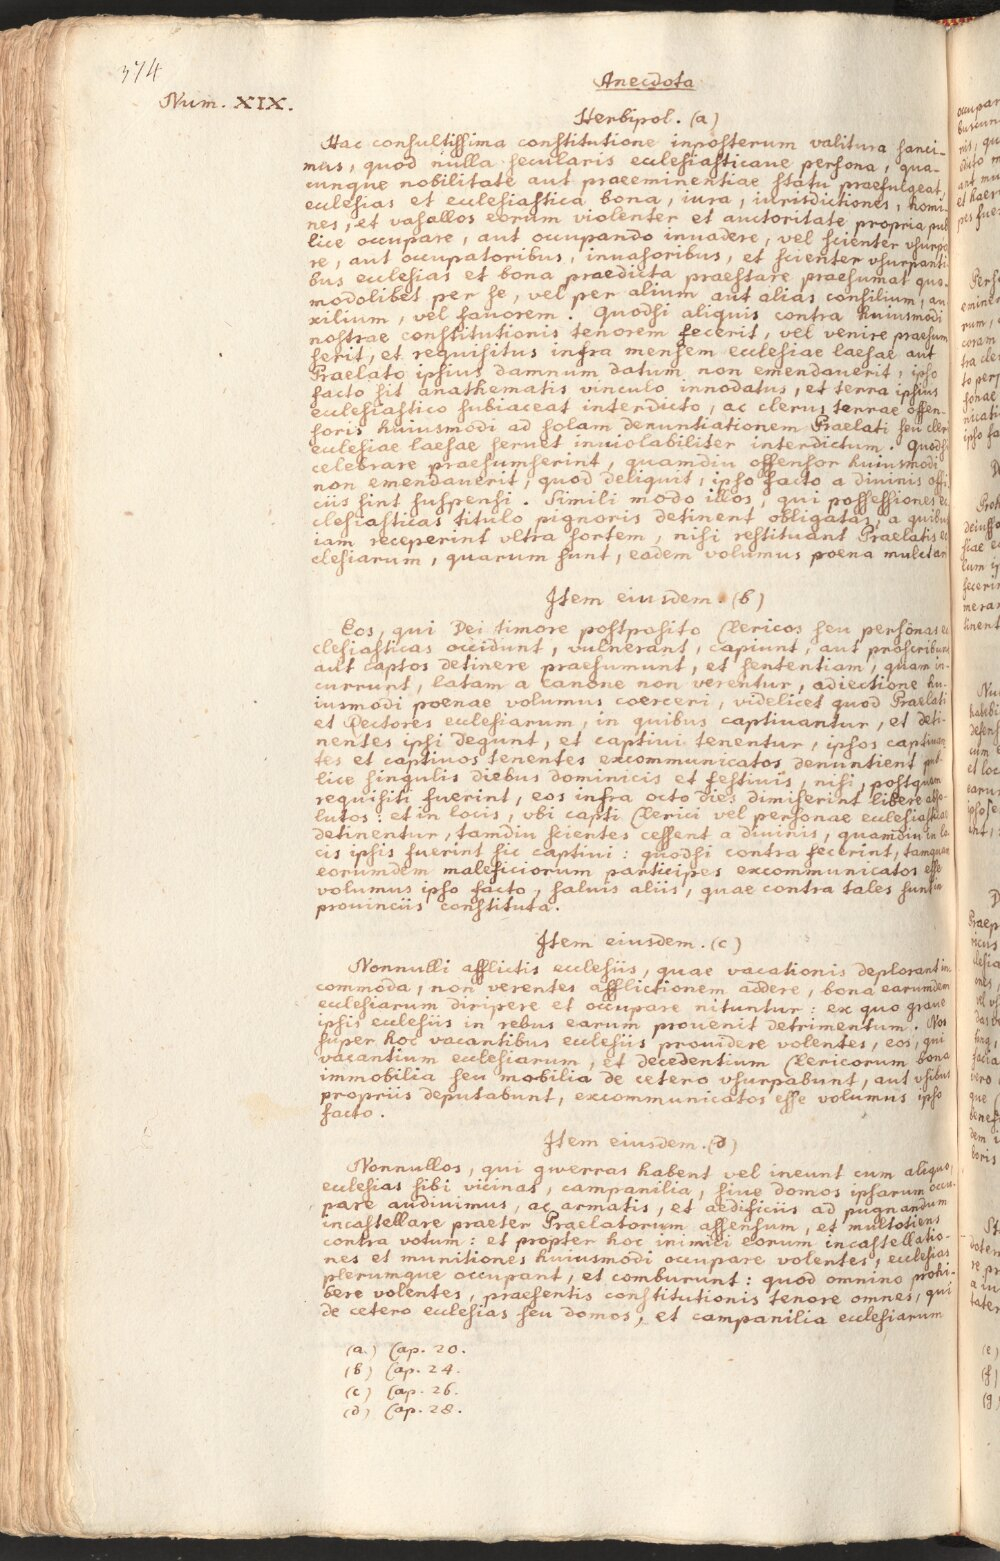 374
Anecdota
Num. XIX.
Herbipol. (a)
Hac consultissima constitutione inposterum valitura sanci-
mus, quod nulla secularis ecclesiasticaue persona, qua-
cunque nobilitate aut praeeminentiae statu praefulgeat,
ecclesias et ecclesiastica bona, iura, iurisdictiones, homi-
nes, et vasallos eorum violenter et auctoritate propria pub
lice occupare, aut occupando inuadere, vel scienter vsurpa
re, aut occupatoribus, inuasoribus, et scienter vsurpanti
bus ecclesias et bona praedicta praestare praesumat quo-
modolibet per se, vel per alium aut alias consilium, au
xilium, vel fauorem. Quodsi aliquis contra huiusmodi
nostrae constitutionis tenorem fecerit, vel venire praesum
serit, et requisitus infra mensem ecclesiae laesae aut
Praelato ipsius damnum datum non emendauerit, ipso
facto sit anathematis vinculo innodatus, et terra ipsius
ecclesiastico subiaceat interdicto, ac clerus terrae offen-
soris huiusmodi ad solam denuntiationem Praelati seu cleri
ecclesiae laesae seruet inuiolabiliter interdictum. Quodsi
celebrare praesumserint, quamdiu offensor huiusmodi
non emendauerit, quod deliquit, ipso facto a diuinis offi
ciis sint suspensi. Simili modo illos, qui possessiones ec
clesiasticas titulo pignoris detinent obligatas, a quibus
iam receperint vltra sortem, nisi restituant Praelatis ec
clesiarum, quarum sunt, eadem volumus poena mulctari
Item eiusdem. (b)
Eos, qui Dei timore postposito Clericos seu personas ec
clesiasticas occidunt, vulnerant, capiunt, aut proscribunt
aut captos detinere praesumunt, et sententiam, quam in-
currunt, latam a canone non verentur, adiectione hu-
iusmodi poenae volumus coerceri, videlicet quod Praelati
et Rectores ecclesiarum, in quibus captiuantur, et deti-
nentes ipsi degunt, et captiui tenentur, ipsos captiuan
tes et captiuos tenentes excommunicatos denuntient pub
lice singulis diebus dominicis et festiuis, nisi, postquam
requisiti fuerint, eos infra octo dies dimiserint libere abso-
lutos: et in locis, vbi capti Clerici vel personae ecclesiasticae
detinentur, tamdiu scientes cessent a diuinis, quamdiu in lo
cis ipsis fuerint sic captiui: quodsi contra fecerint, tamquam
eorumdem maleficiorum participes excommunicatos esse
volumus ipso facto, saluis aliis, quae contra tales sunt in
prouinciis constituta.
Item eiusdem. (c)
Nonnulli afflictis ecclesiis, quae vacationis deplorant in
commoda, non verentes afflictionem addere, bona earumdem
ecclesiarum diripere et occupare nituntur: ex quo graue
ipsis ecclesiis in rebus earum prouenit detrimentum. Nos
super hoc vacantibus ecclesiis prouidere volentes, eos, qui
vacantium ecclesiarum, et decedentium Clericorum bona
immobilia seu mobilia de cetero vsurpabunt, aut vsibus
propriis deputabunt, excommunicatos esse volumus ipso
facto.
Item eiusdem. (d)
Nonnullos, qui gwerras habent vel ineunt cum aliquo,
ecclesias sibi vicinas, campanilia, siue domos ipsarum occu-
pare audiuimus, ac armatis, et aedificiis ad pugnandum
incastellare praeter Praelatorum assensum, et multotiens
contra votum: et propter hoc inimici eorum incastellatio-
nes et munitiones huiusmodi occupare volentes, ecclesias
plerumque occupant, et comburunt: quod omnino prohi-
bere volentes, praesentis constitutionis tenore omnes, qui
de cetero ecclesias seu domos, et campanilia ecclesiarum
(a) Cap. 20.
(b) Cap. 24.
(c) Cap. 26.
(d) Cap. 28.